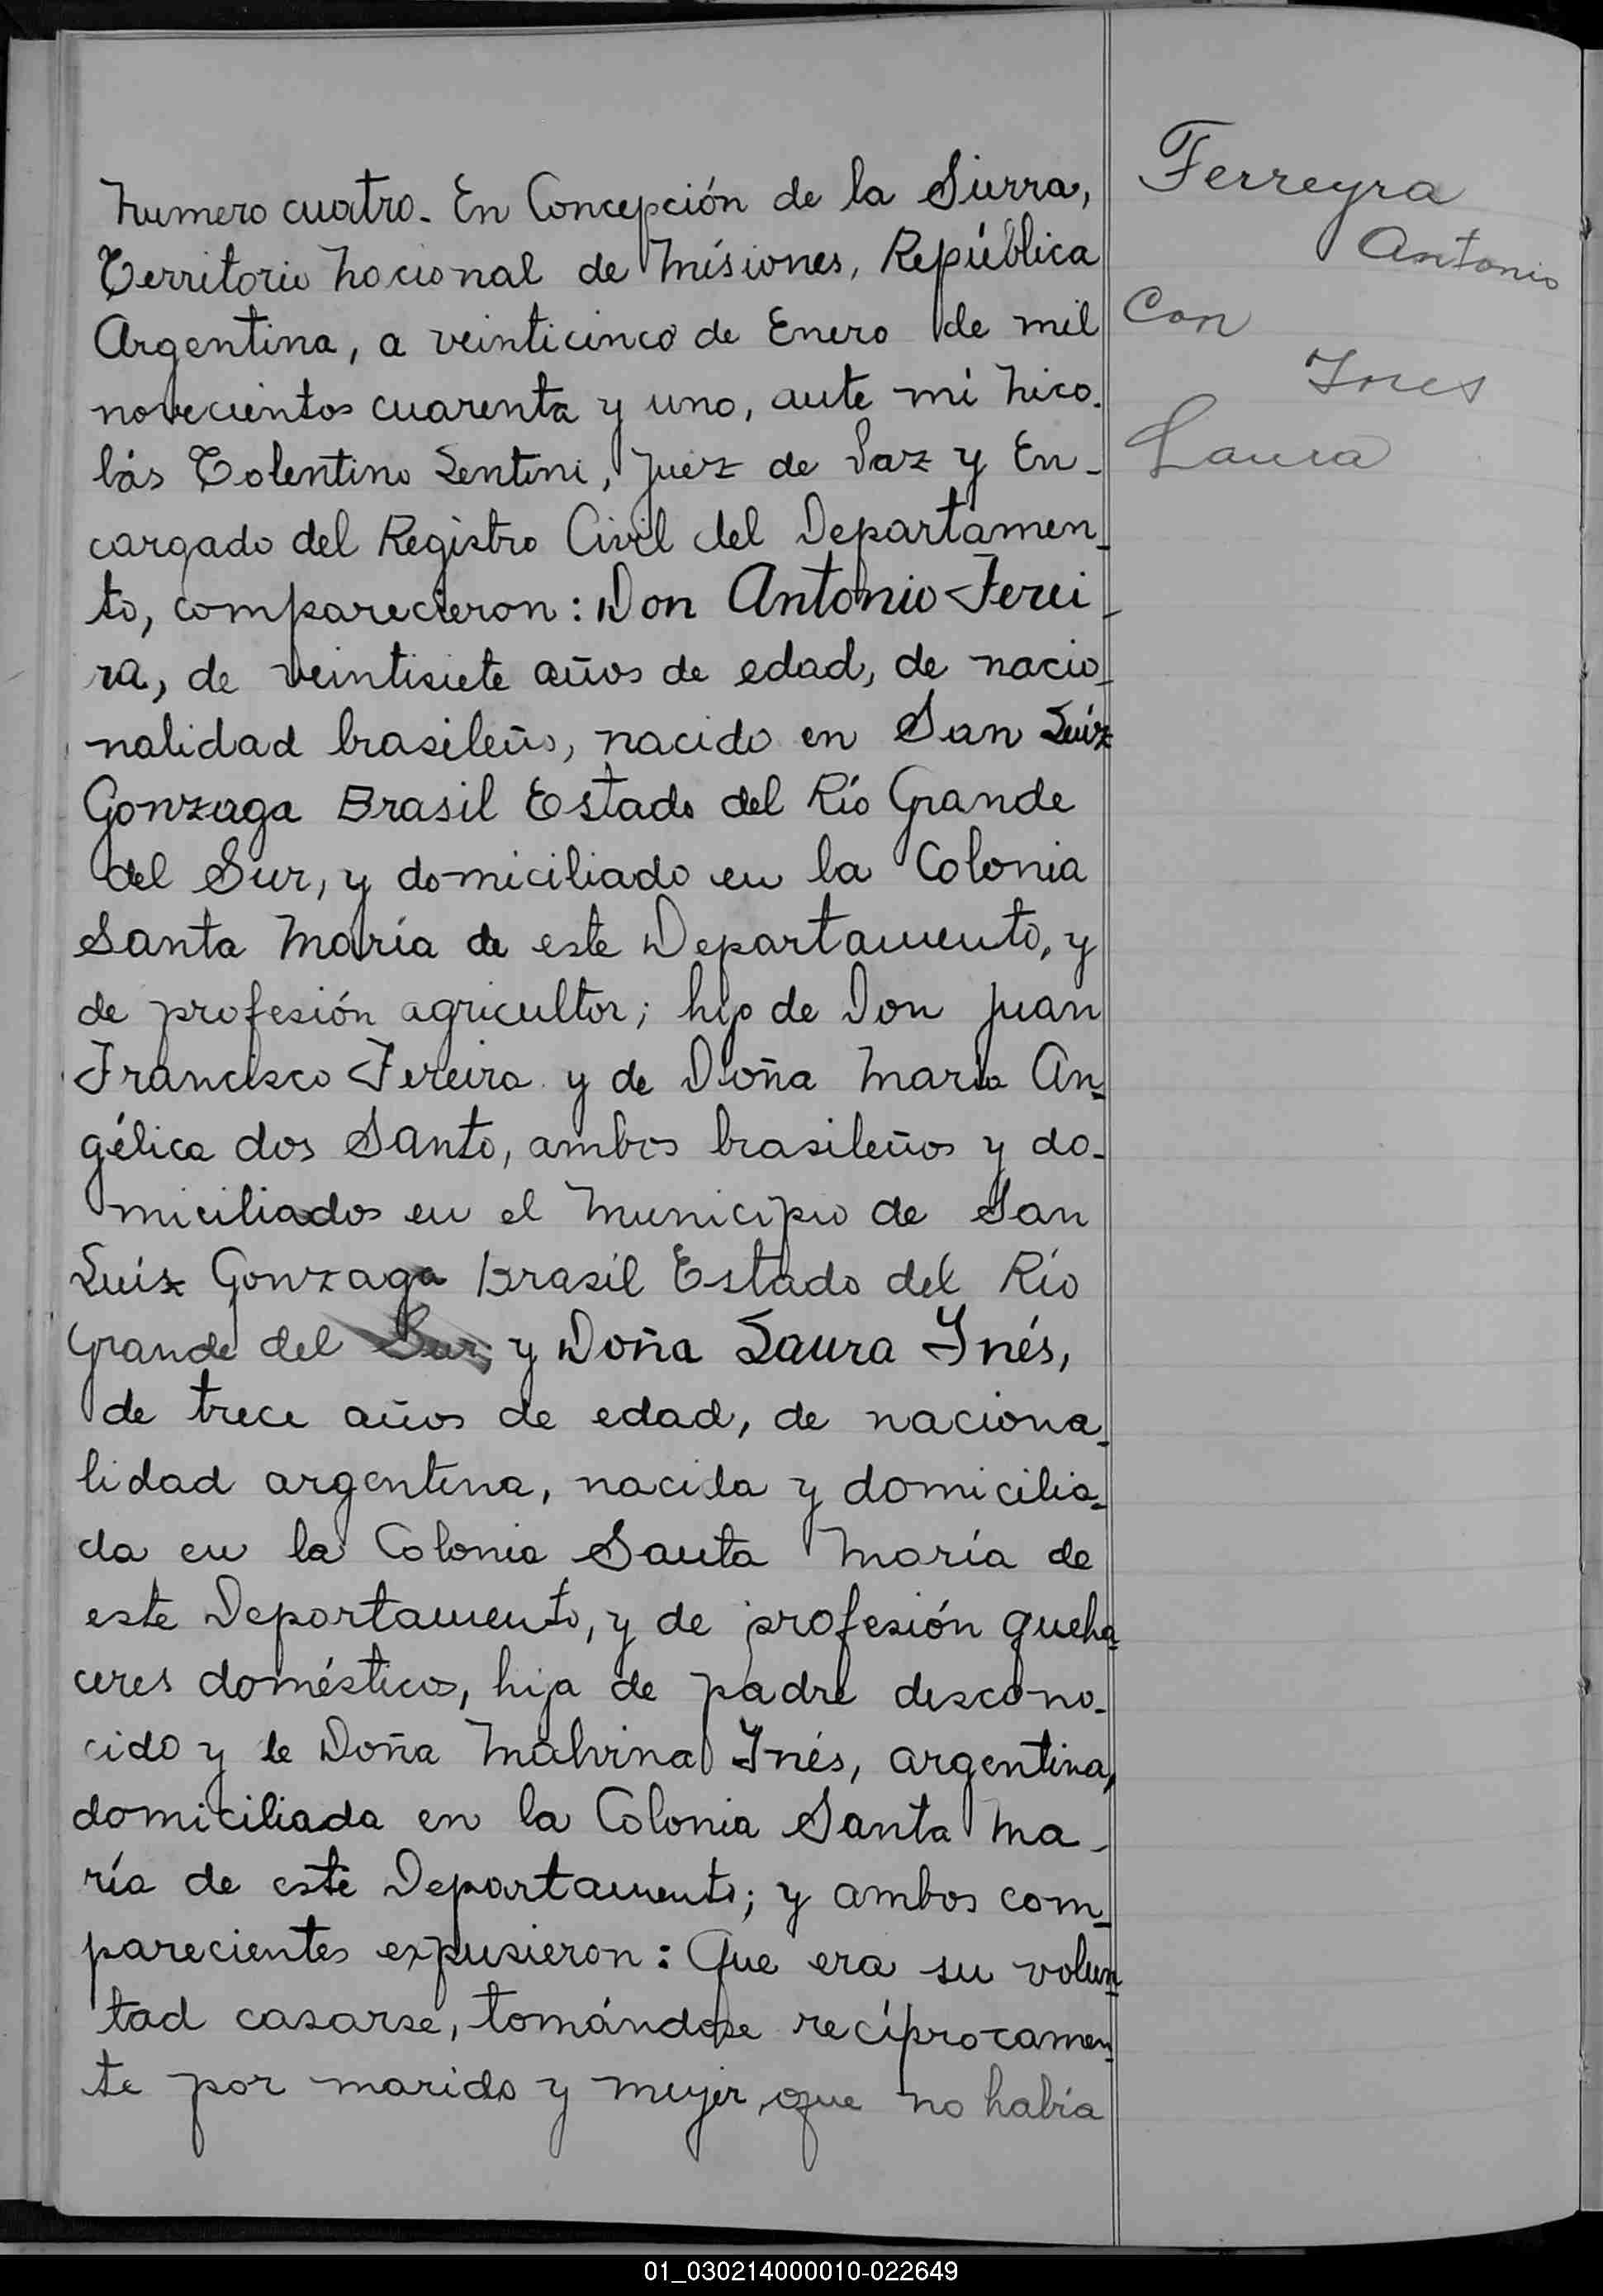 Numero cuatro. En Concepción de la Sierra,
Territorio Nacional de Misiones, República
Argentina, a veinticinco de Enero de mil
novecientos cuarenta y uno, ante mí Nico-
lás Tolentino Sentini, Juez de Paz y En-
cargado del Registro Civil del Departamen-
to, comparecieron: Don Antonio Ferei-
ra, de veintisiete años de edad, de nacio-
nalidad brasileño, nacido en San Luíz
Gonzaga Brasil Estado del Río Grande
del Sur, y domiciliado en la Colonia
Santa María de este Departamento, y
de profesión agricultor; hijo de Don Juan
Francisco Fereira y de Doña Maria An-
gélica dos Santo, ambos brasileños y do-
miciliados en el Municipio de San
Luís Gonzaga Brasil Estado del Río
Grande del Sur; y Doña Laura Inés,
de trece años de edad, de naciona-
lidad argentina, nacida y domicilia-
da en la Colonia Santa María de
este Departamento, y de profesión queha-
ceres domésticos, hija de padre descono-
cido y de Doña Malvina Inés, argentina,
domiciliada en la Colonia Santa Ma-
ría de este Departamento; y ambos com-
parecientes expusieron: Que era su volun-
tad casarse, tomándose recíprocamen-
te por marido y mujer, que no había
Ferreyra
Antonio
Con
Ines
Laura
01_030214000010-022649